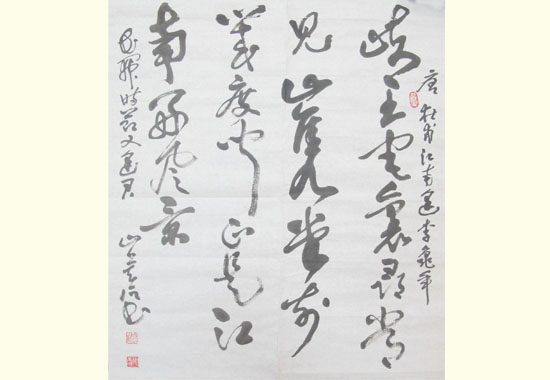 唐 杜甫江南逢李龜年
岐王宅裏尋常
見崔九堂前
幾度聞正是江
南好風景
落花時節又逢君
書